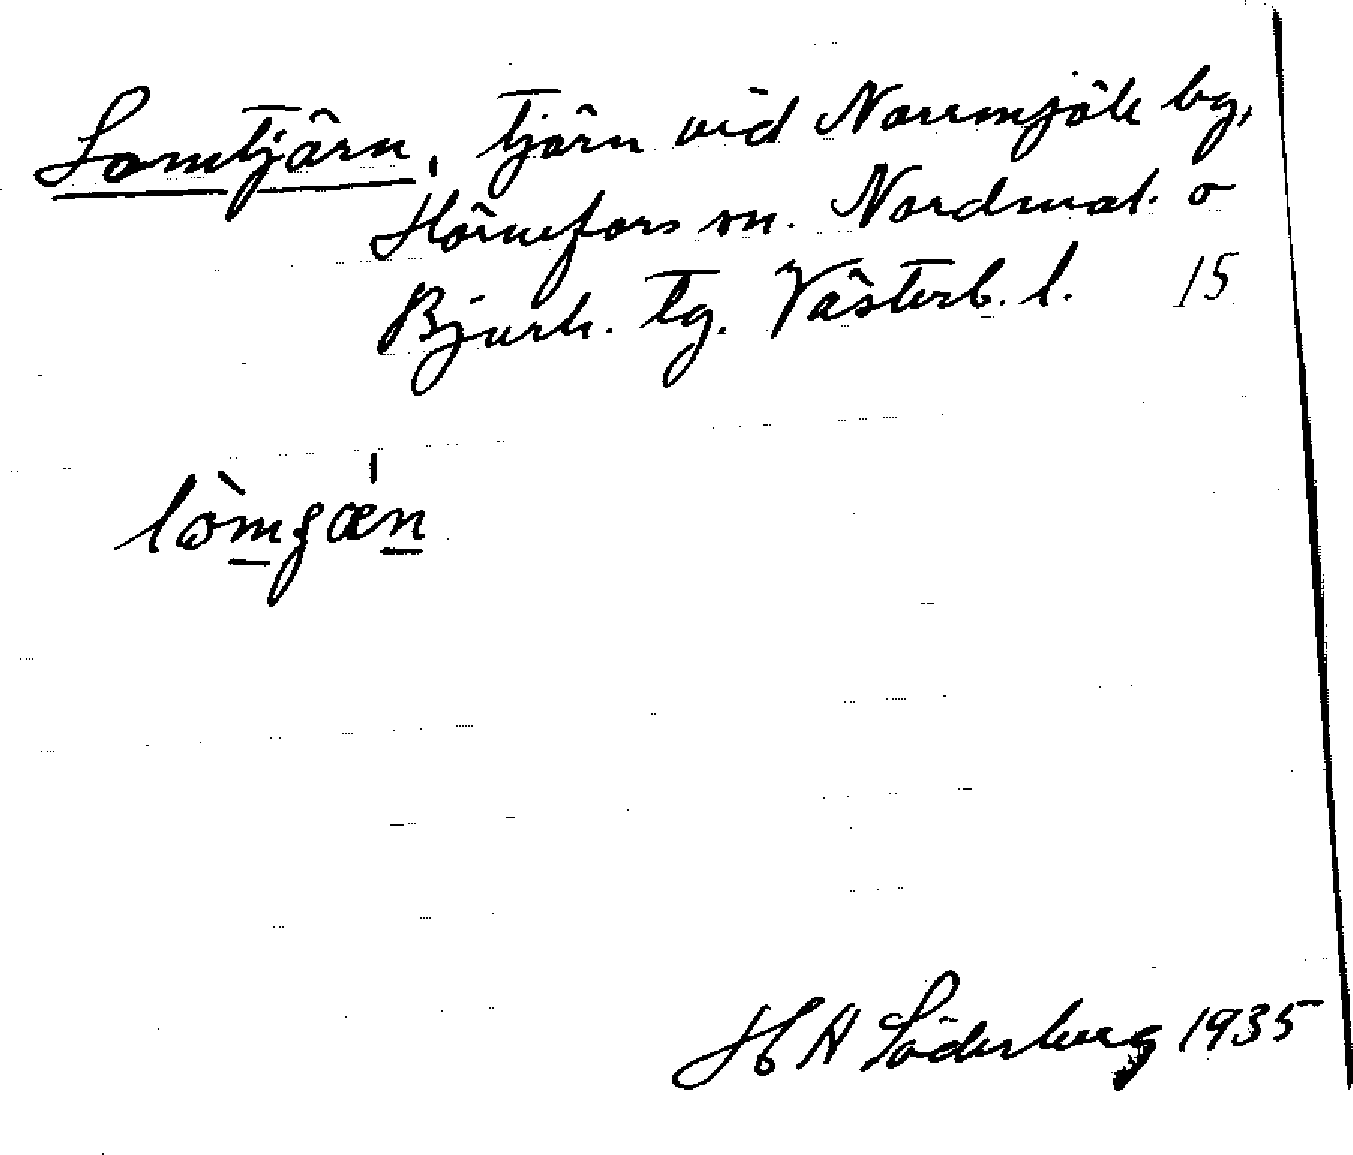 Lomtjärn, tjärn vid Norrmjöle by,
Hörnefors sn. Nordmal. o
Bjurh. tg. Västerb. l. 15
lòmʃæ̀n
H A Söderberg 1935